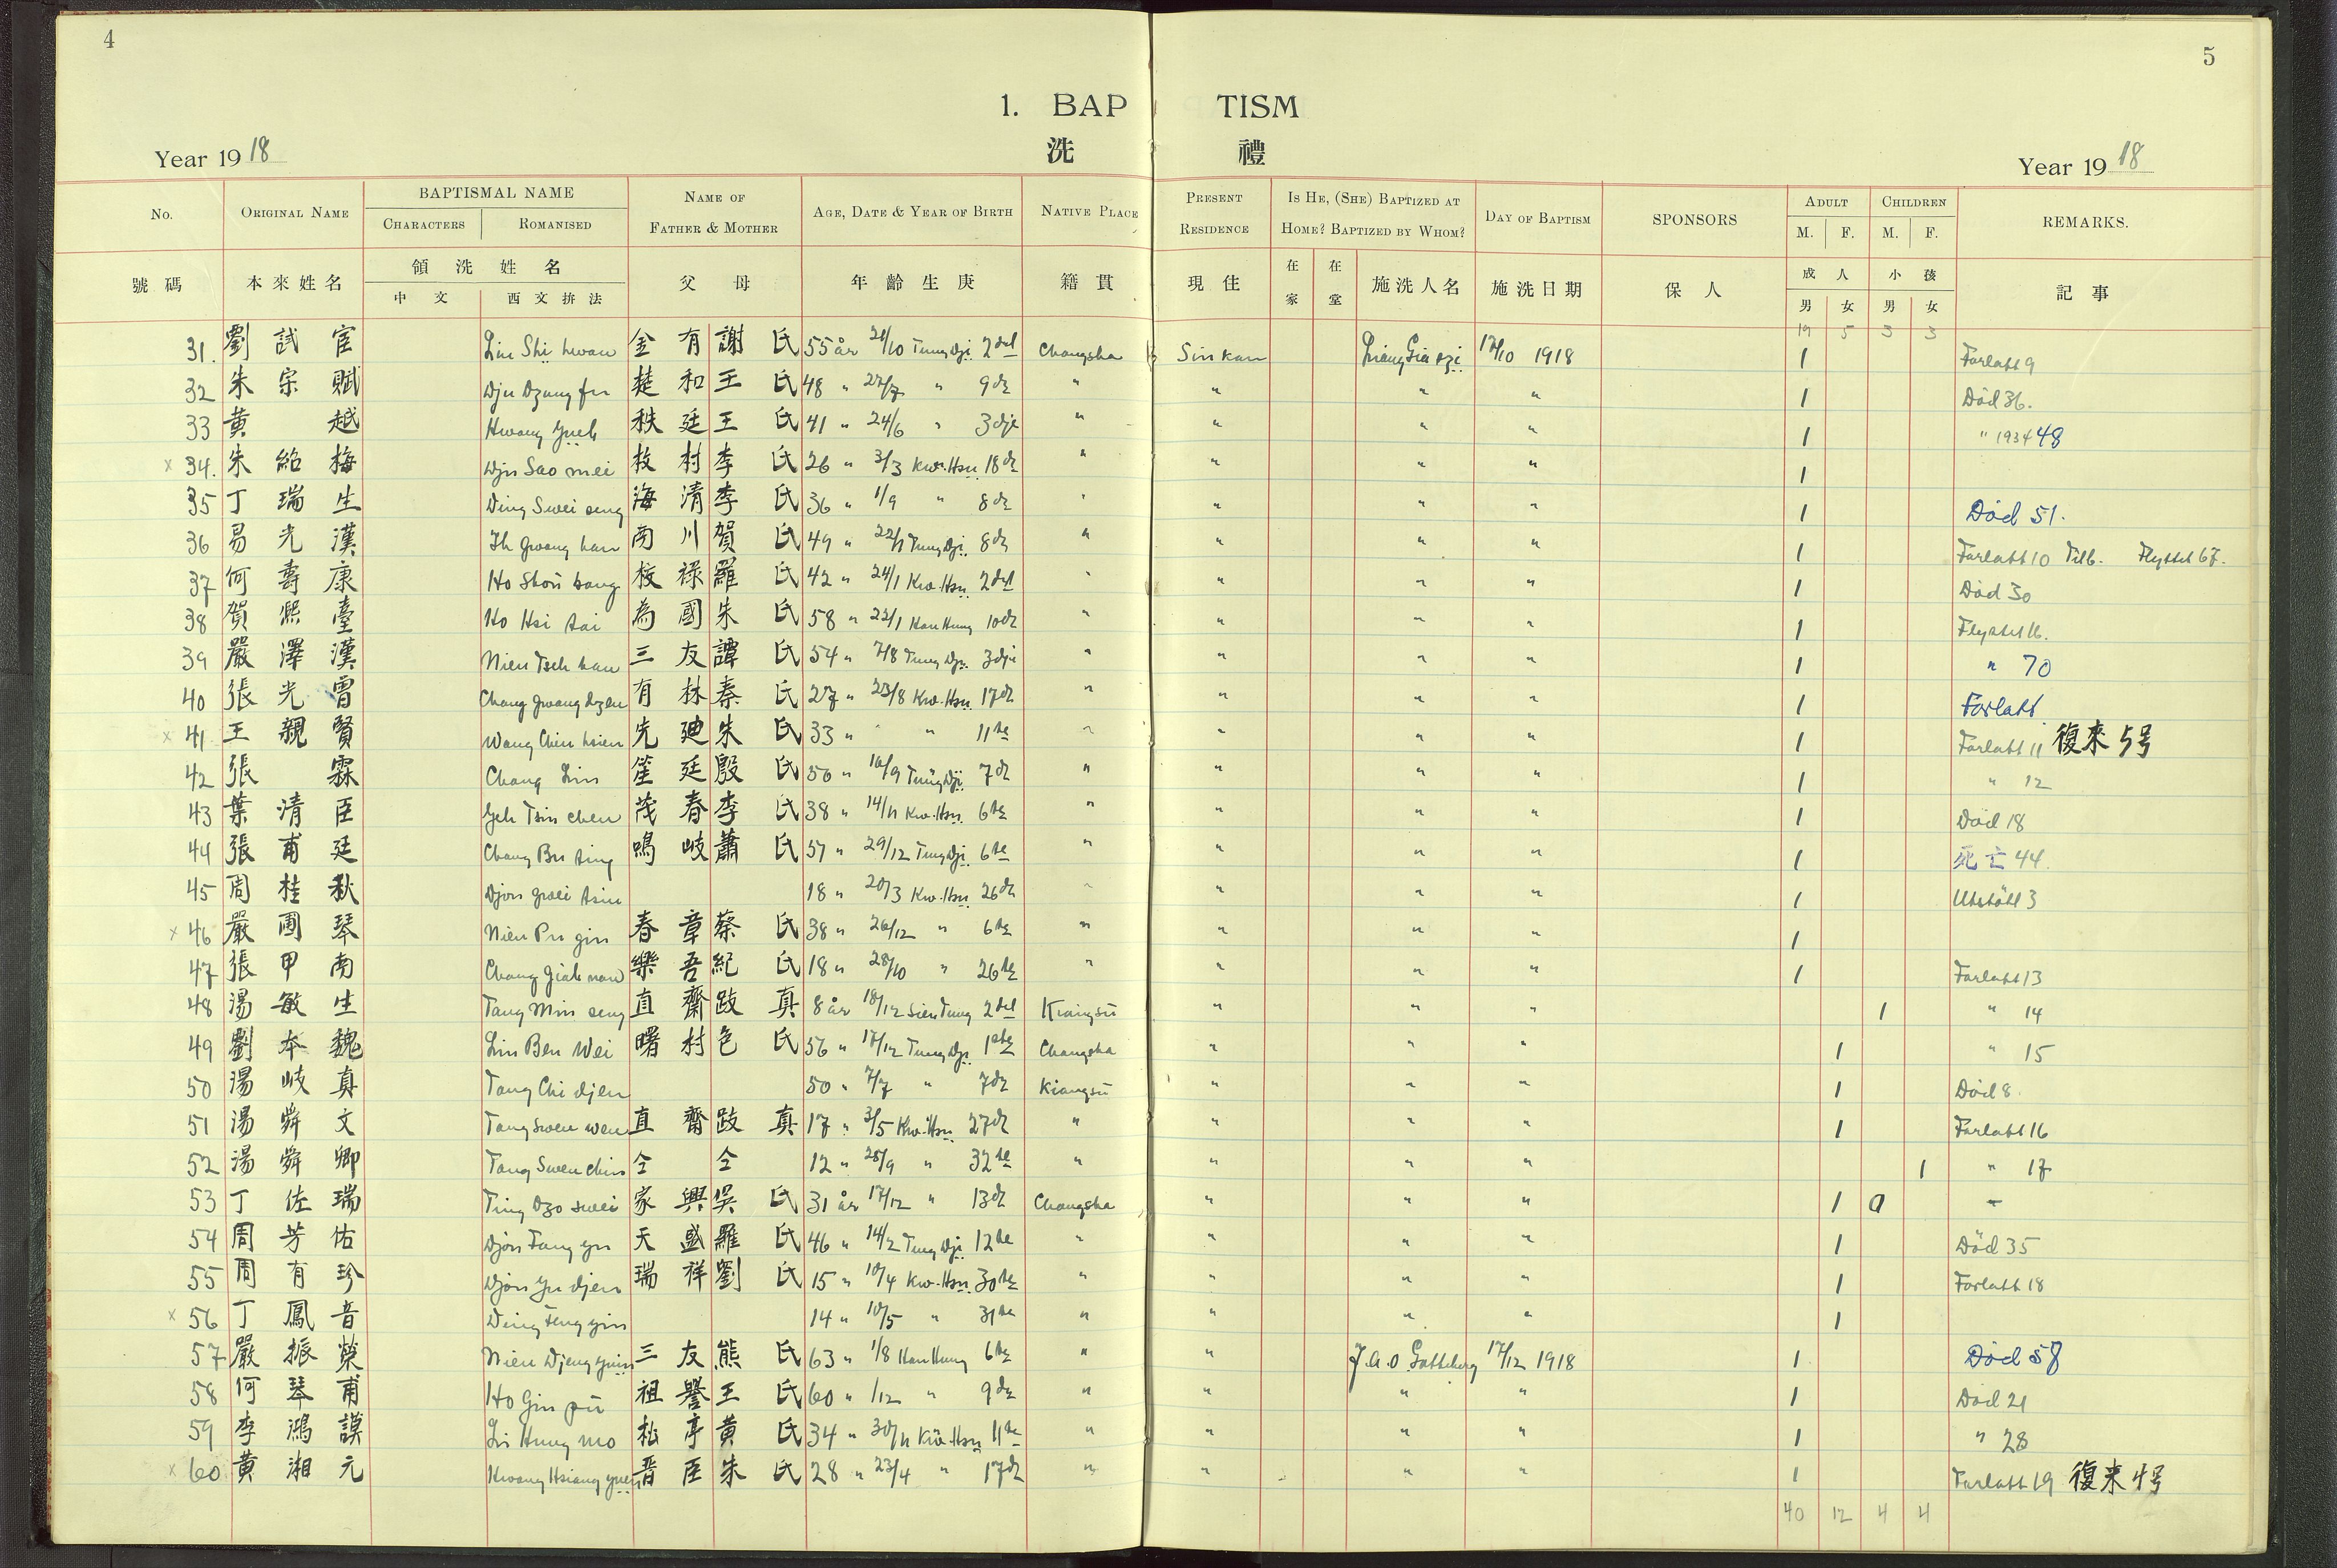 4
5
1. BAP TISM
洗 禮
Year 1918
Year 1918
No. ORIGINAL NAME BAPTISMAL NAME CHARACTERS ROMANISED NAME OF FATHER & MOTHER AGE, DATE & YEAR OF BIRTH NATIVE PLACE PRESENT RESIDENCE IS HE, (SHE) BAPTIZED AT HOME? BAPTIZED BY WHOM? DAY OF BAPTISM SPONSORS ADULT M. F. CHILDREN M. F. REMARKS.
號碼 本來姓名 領洗姓名 中文 西文拚法 父母 年齡生庚 籍貫 現住 在家 在堂 施洗人名 施洗日期 保人 成人 男 女 小孩 男 女 記事
19 5 3 3
31. 劉試宦 Liu Shi hwan 金有謝氏 55 år 21/10 Tung Dji 2del Changsha Sinkan 17/10 1918 1 Førlatt 9
32 朱宗賦 Dju Dzung fu 楚和王氏 48 " 27/7 " 9de " " " " 1 Död 36.
33 黃越 Hwang Yueh 秩廷王氏 41 " 24/6 " 3dje " " " " 1 " 1934 48
x 34. 朱紹梅 Dju Sao mei 枚村李氏 26 " 3/3 Kw. Hsu 18de " " " " 1
35 丁瑞生 Ding Swei seng 海清李氏 36 " 1/9 " 8de " " " " 1 Död 51.
36 易光漢 Ih Gwang han 南川賀氏 49 " 22/1 Tung Dji 8de " " " " 1 Førlatt 10 Tilb. Flyttet 67.
37 何壽康 Ho Shou kang 桜祿羅氏 42 " 24/1 Kw. Hsu 2del " " " " 1 Död 30
38 賀熙臺 Ho Hsi tai 為國朱氏 58 " 23/1 Han Hung 10de " " " " 1 Flyttet 16.
39 嚴澤漢 Nien Tseh han 三友譚氏 54 " 7/8 Tung Dji 3dje " " " " 1 " 70
40 張光曾 Chang Gwang dzen 有林秦氏 27 " 23/8 Kw. Hsu 17de " " " " 1 Forlatt
x 41 王親賢 Wang Chin hsien 先廸朱氏 33 " " " 11te " " " " 1 Forlatt 11 復來5号
42 張霖 Chang Lin 笙廷殷氏 50 " 16/9 Tung Dji 7de " " " " 1 " 12
43 葉清臣 Yeh Tsin chen 茂春李氏 38 " 14/11 Kw. Hsu 6te " " " " 1 Död 18
44 張甫廷 Chang Bu ting 鳴岐蕭氏 57 " 29/12 Tung Dji 6te " " " " 1 死亡 44.
45 周桂秋 Djou Gwei tsiu 18 " 20/3 Kw. Hsu 26de " " " " 1 Utstött 3
x 46 嚴圃琴 Nien Pu gin 春章蔡氏 38 " 26/12 " 6te " " " " 1
47 張甲南 Chang Giah nan 樂吾紀氏 18 " 28/10 " 26te " " " " 1 Forlatt 13
48 湯敏生 Tang Min seng 直齋跂真 8 år 18/12 Sien Tung 2del Kiangsü " " " 1 " 14
49 劉本魏 Liu Ben Wei 曙村色氏 56 " 17/12 Tung Dji 1ste Changsha " " " 1 " 15
50 湯岐真 Tang Chi djen 50 " 7/7 " 7de Kiangsü " " " 1 Död 8.
51 湯舜文 Tang Swen wen 直齋跂真 17 " 3/5 Kw. Hsu 27de " " " " 1 Forlatt 16
52 湯舜卿 Tang Swen chin 仝 仝 12 " 28/9 " 32te " " " " 1 " 17
53 丁佐瑞 Ting Dzo swei 家興吳氏 31 år 17/12 " 13de Changsha " " " 1
54 周芳佑 Djou Fang yu 天盛羅氏 46 " 14/2 Tung Dji 12te " " " " 1 Död 35
55 周有珍 Djou Yu djen 瑞祥劉氏 15 " 10/4 Kw. Hsu 30te " " " " 1 Forlatt 18
x 56 丁鳳音 Ding Feng yin 14 " 10/5 " 31te " " " " 1
57 嚴振榮 Nien Djeng yuin 三友熊氏 63 " 1/8 Han Hung 6te " " J. A. O. Gotteberg 17/12 1918 1 Död 58
58 何琴甫 Ho Gin pu 祖譽王氏 60 " 1/12 " 9de " " " " 1 Död 21
59 李鴻謨 Li Hung mo 松亭黃氏 34 " 30/11 Kw. Hsu 11te " " " " 1 " 28
x 60 黃湘元 Hwang Hsiang yuen 晋臣朱氏 28 " 23/4 " 17de " " " " 1 Forlatt 19 復來4号
40 12 4 4